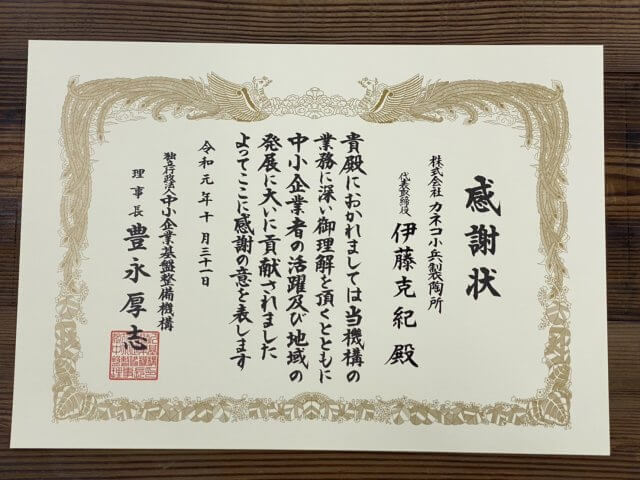 感謝状
株式会社 カネコ小兵製陶所
代表取締役 伊藤克紀 殿
貴殿におかれましては当機構の
業務に深い御理解を頂くとともに
中小企業者の活躍及び地域の
発展に大いに貢献されました
よってここに感謝の意を表します
令和元年十月三十一日
独立行政法人中小企業基盤整備機構
理事長 豊永厚志